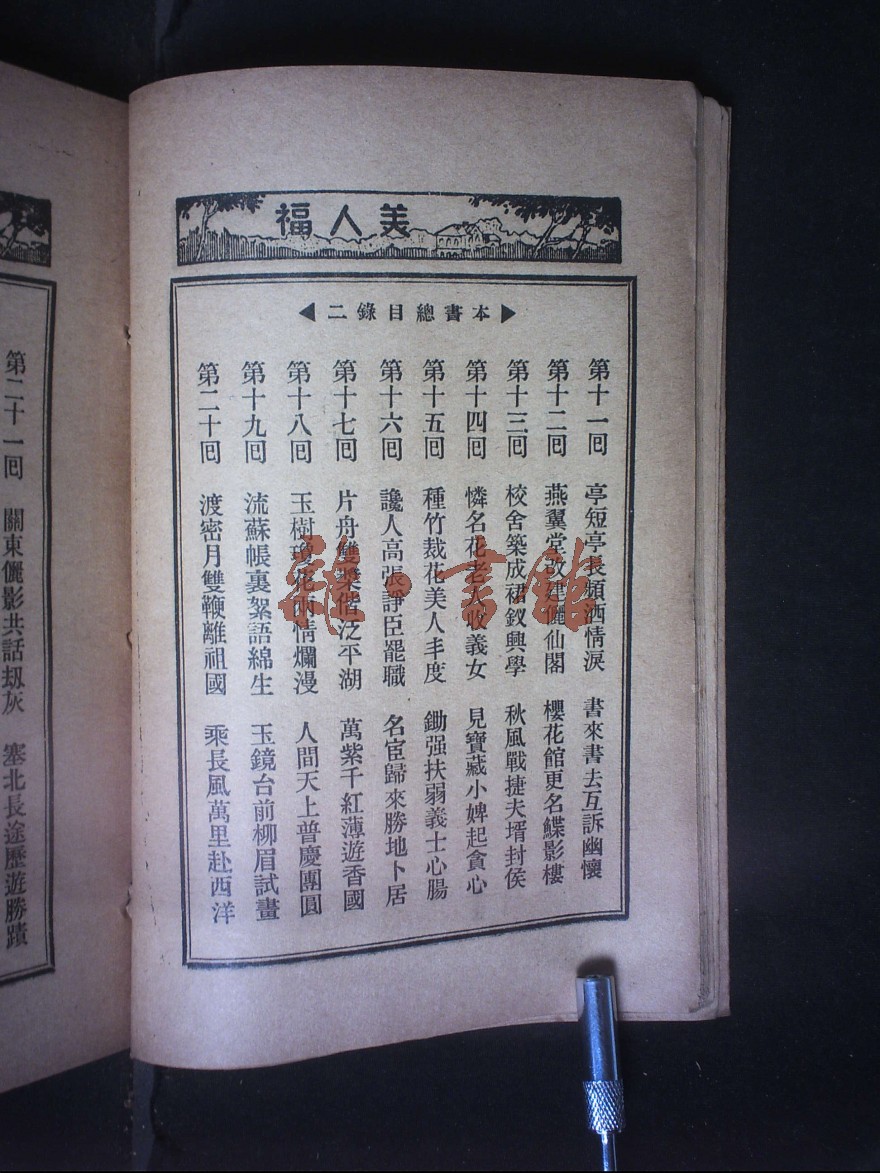 美人福
▶本書總目錄二◀
第十一囘 亭短亭長頻洒情淚 書來書去互訴幽懷
第十二囘 燕翼堂改建儷仙閣 櫻花館更名鰈影樓
第十三囘 校舍築成裙釵興學 秋風戰捷夫壻封侯
第十四囘 憐名花老人收義女 見寶藏小婢起貪心
第十五囘 種竹栽花美人丰度 鋤强扶弱義士心腸
第十六囘 讒人高張諍臣罷職 名宦歸來勝地卜居
第十七囘 片舟雙槳偕泛平湖 萬紫千紅薄遊香國
第十八囘 玉樹瓊花兩情爛漫 人間天上普慶團圓
第十九囘 流蘇帳裏絮語綿生 玉鏡台前柳眉試畫
第二十囘 渡密月雙鞭離祖國 乘長風萬里赴西洋
第二十一囘 關東儷影共話刼灰 塞北長途歷遊勝蹟
雜·書館